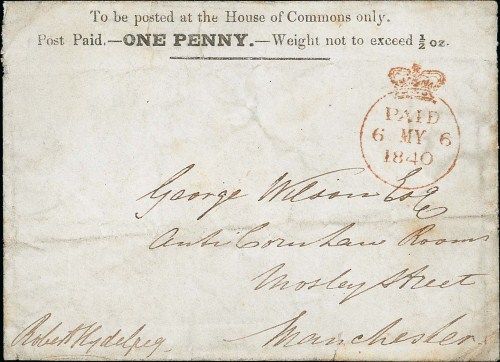 To be posted at the House of Commons only.
Post Paid.—ONE PENNY.—Weight not to exceed ½ oz.
PAID
6 MY 6
1840
George Wilson Esq
Anti Corn Law Rooms
Mosley Street
Manchester
Robert Hyde